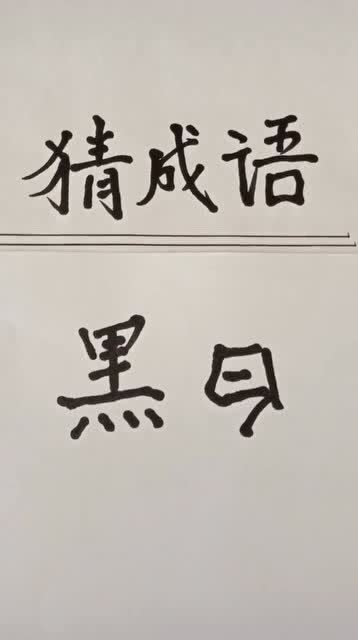 猜成语
黑白